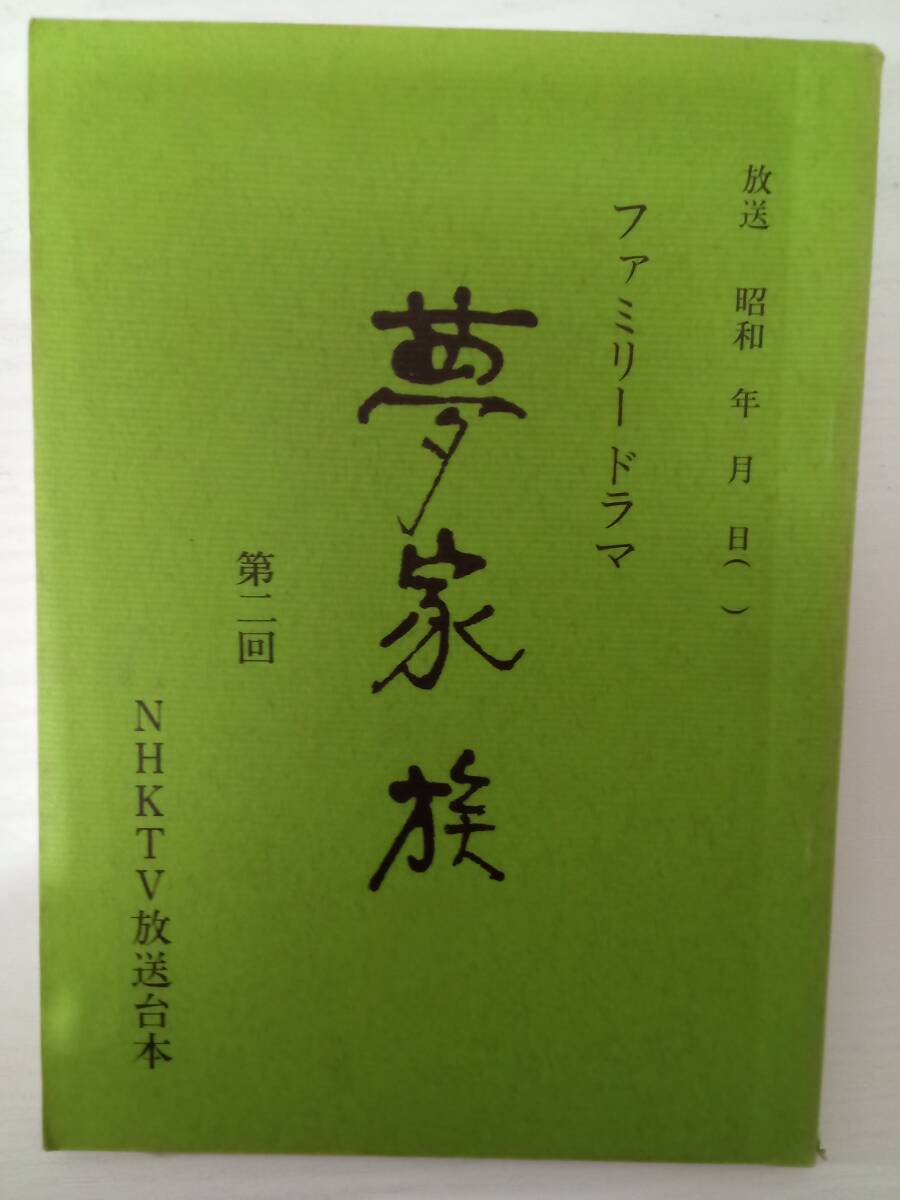 放送 昭和 年 月 日( )
ファミリードラマ
夢家族
第二回
NHKTV放送台本